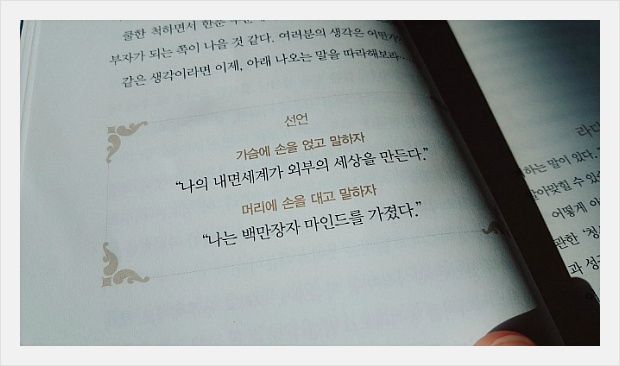 쿨한 척하면서 한순
부자가 되는 쪽이 나을 것 같다. 여러분의 생각은 어떤가
같은 생각이라면 이제, 아래 나오는 말을 따라해보라
선언
가슴에 손을 얹고 말하자
“나의 내면세계가 외부의 세상을 만든다.”
머리에 손을 대고 말하자
“나는 백만장자 마인드를 가졌다.”
하는 말이 있다.
알아맞힐 수 있
어떻게 아
관한 ‘청
과 성